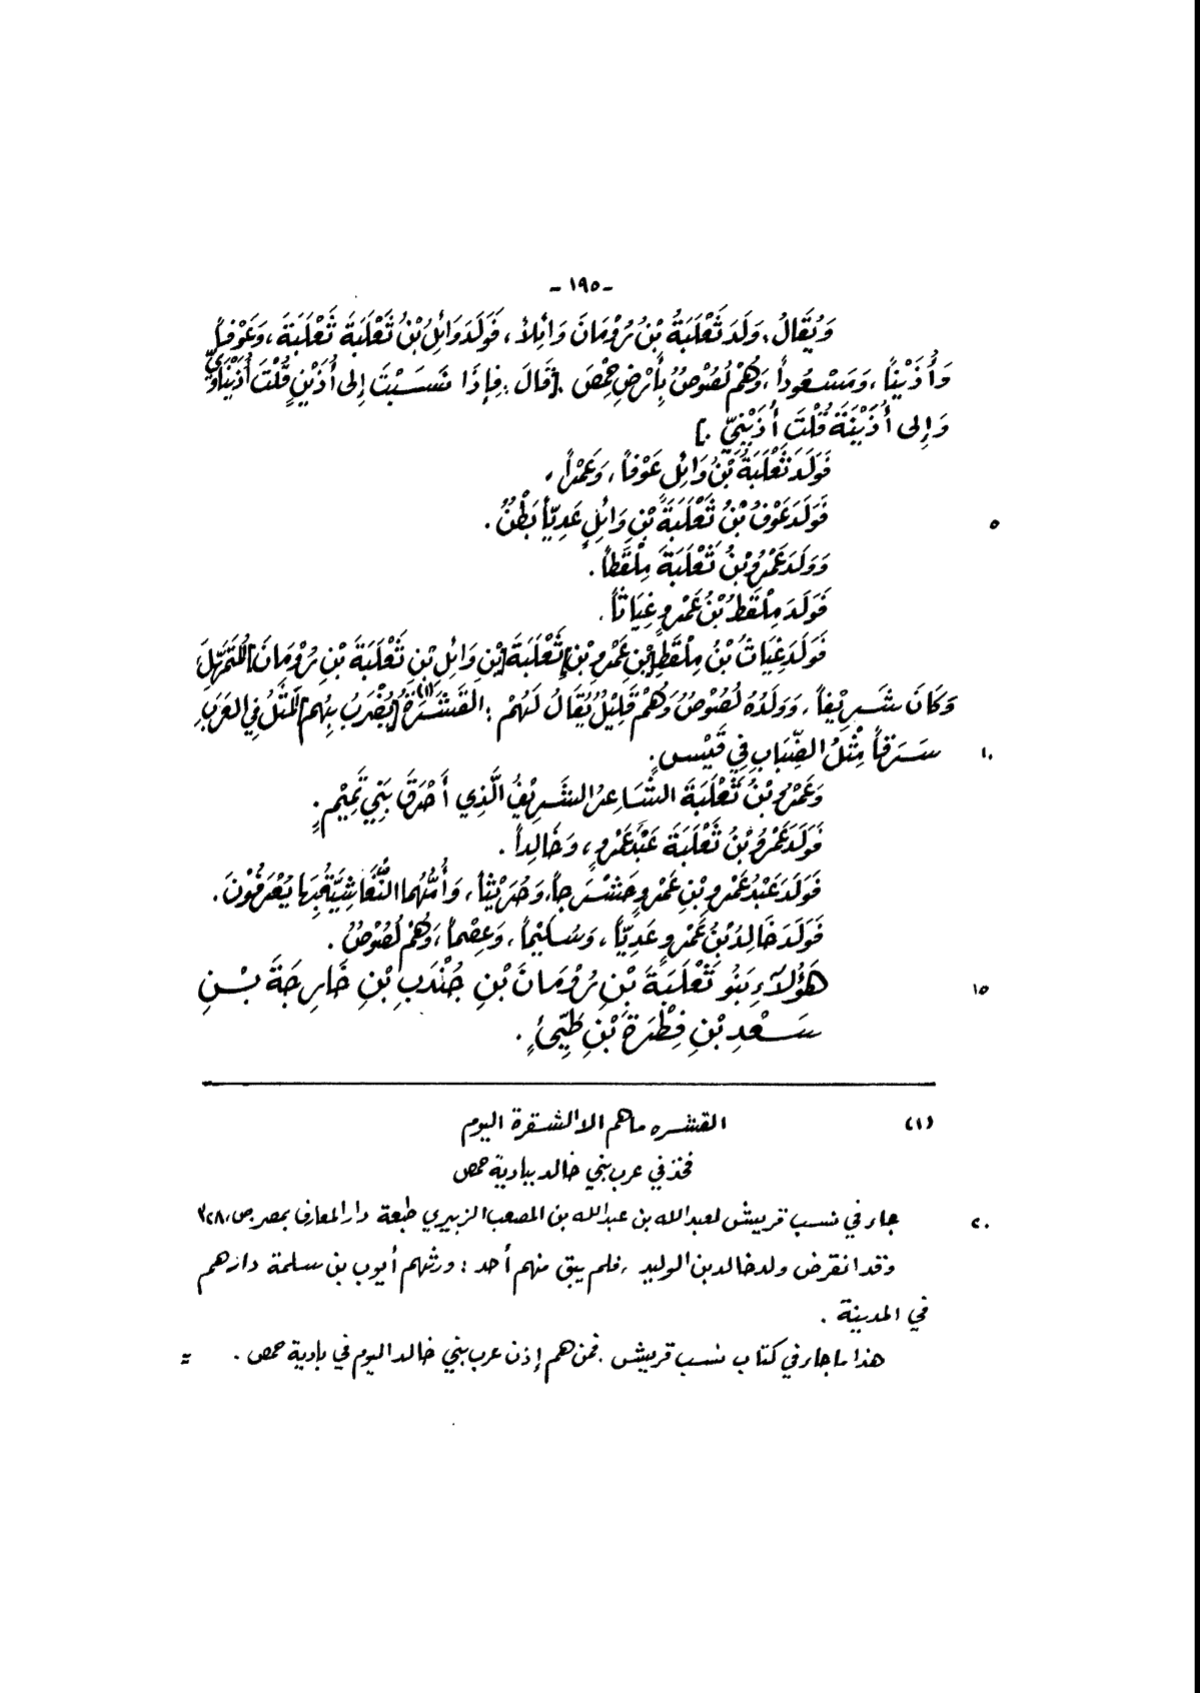 -١٩٥-
وَيُقَالُ: وَلَدَ ثَعْلَبَةُ بْنُ رُوْمَانَ وَائِلاً، فَوَلَدَ وَائِلُ بْنُ ثَعْلَبَةَ ثَعْلَبَةَ، وَعَوْفاً،
وَأُذَيْناً، وَمَسْعُوداً، وَهُمْ لُصُوْصٌ بِأَرْضِ حِمْصَ [قَالَ: فَإِذَا نَسَبْتَ إِلى أُذَيْنٍ قُلْتَ
وَإِلى أُذَيْنَةَ قُلْتَ أُذَيْنِيّ.]
فَوَلَدَ ثَعْلَبَةُ بْنُ وَائِلٍ عَوْفاً، وَعَمْراً،
فَوَلَدَ عَوْفُ بْنُ ثَعْلَبَةَ بْنِ وَائِلٍ عَدِيّاً بَطْنٌ. ٥
وَوَلَدَ عَمْرُو بْنُ ثَعْلَبَةَ مِلْقَطاً.
فَوَلَدَ مِلْقَطُ بْنُ عَمْرٍو غِيَاثاً.
فَوَلَدَ غِيَاثُ بْنُ مِلْقَطِ [بْنِ عَمْرِو بْنِ] ثَعْلَبَةَ [بْنِ وَائِلِ بْنِ ثَعْلَبَةَ بْنِ رُوْمَانَ] المُتَمَهِّلَ
وَكَانَ شَرِيْفاً، وَوَلَدُهُ لُصُوْصٌ وَهُمْ قَلِيْلٌ يُقَالُ لَهُمْ: القَشْشَرَةُ(١) [يُضْرَبُ بِهِم] المَثَلُ فِي العَرَبِ
سَرَقاً مِثْلُ الضِّبَابِ فِي قَيْسٍ. ١٠
وَعَمْرُو بْنُ ثَعْلَبَةَ الشَّاعِرُ الشَّرِيْفُ الَّذِي أَحْرَقَ بَنِي تَمِيْمٍ.
فَوَلَدَ عَمْرُو بْنُ ثَعْلَبَةَ عَبْدَ عَمْرٍو، وَخَالِداً.
فَوَلَدَ عَبْدُ عَمْرِو بْنِ عَمْرٍو حَشْرَجاً، وَحُرَيْثاً، وَأُمُّهُما بِهَا يُعْرَفُوْنَ.
فَوَلَدَ خَالِدُ بْنُ عَمْرٍو عَدِيّاً، وَسُلَيْماً، وَعِصْماً، وَهُمْ لُصُوْصٌ.
هَؤُلَاءِ بَنُو ثَعْلَبَةَ بْنِ رُوْمَانَ بْنِ جُنْدَبِ بْنِ خَارِجَةَ بْنِ ١٥
سَعْدِ بْنِ فِطْرَةَ بْنِ طَيِّئٍ.
(١) القششره ماهم الا الشقرة اليوم
فخذ في عرب بني خالد ببادية حمص
جاء في نسب قريش لعبد الله بن عبدالله بن المصعب الزبيري طبعة دار المعارف بمصر ص،٣٢٨ ٢٠
وقد انقرض ولد خالد بن الوليد، فلم يبق منهم أحد: ورثهم أيوب بن سلمة دارهم
في المدينة.
هذا ما جاء في كتاب نسب قريش. فمن هم إذن عرب بني خالد اليوم في بادية حمص. =